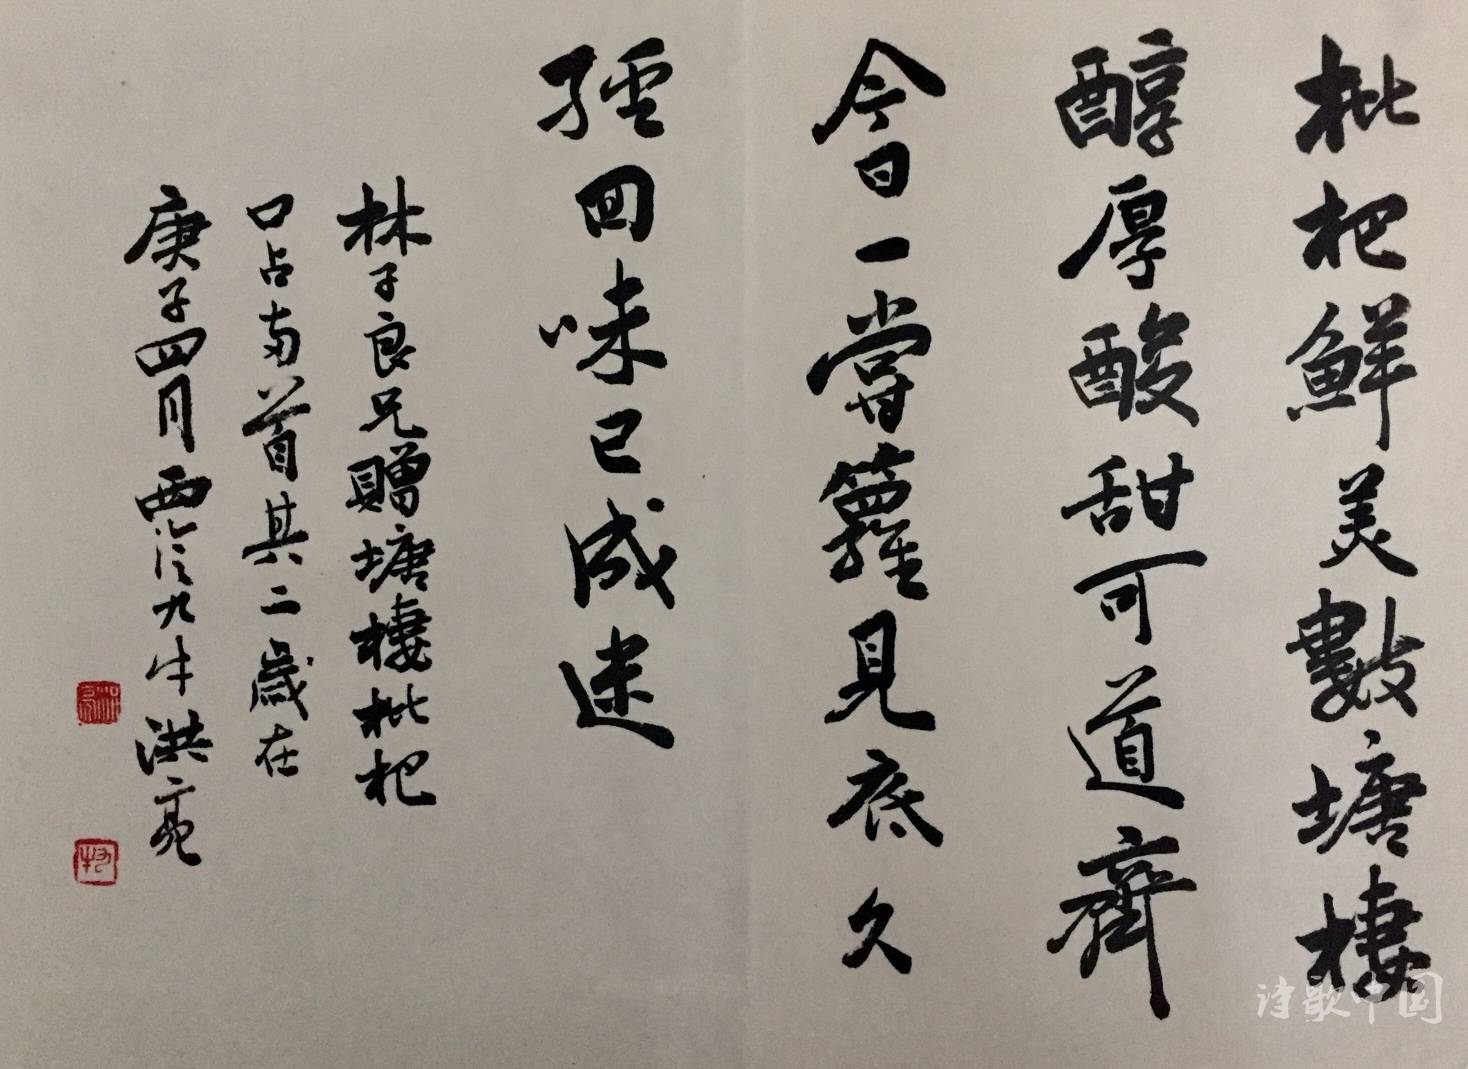 枇杷鮮美數塘棲
醇厚酸甜可道齊
今日一嘗籮見底久
經回味已成迷
林子良兄贈塘棲枇杷
口占两首其二歲在
庚子四月西泠九牛洪亮
诗歌中国